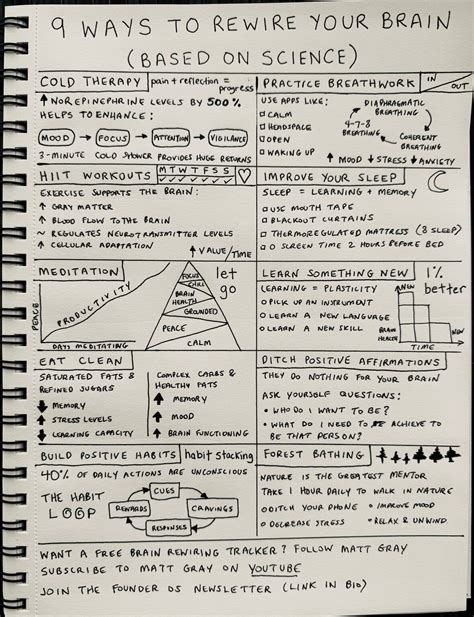 9 WAYS TO REWIRE YOUR BRAIN
(BASED ON SCIENCE)
COLD THERAPY
pain + reflection =
progress
↑ NOREPINEPHRINE LEVELS BY 500%
HELPS TO ENHANCE:
MOOD → FOCUS → ATTENTION → VIGILANCE
3-MINUTE COLD SHOWER PROVIDES HUGE RETURNS
PRACTICE BREATHWORK
IN
OUT
USE APPS LIKE:
CALM
HEADSPACE
OPEN
WAKING UP
DIAPHRAGMATIC
BREATHING
4-7-8
BREATHING
COHERENT
BREATHING
↑ MOOD ↓ STRESS ↓ ANXIETY
HIIT WORKOUTS
M T W T F S S
EXERCISE SUPPORTS THE BRAIN:
↑ GRAY MATTER
↑ BLOOD FLOW TO THE BRAIN
~ REGULATES NEUROTRANSMITTER LEVELS
↑ CELLULAR ADAPTATION
↑ VALUE/TIME
IMPROVE YOUR SLEEP
SLEEP = LEARNING + MEMORY
USE MOUTH TAPE
BLACKOUT CURTAINS
THERMOREGULATED MATTRESS (8 SLEEP)
0 SCREEN TIME 2 HOURS BEFORE BED
MEDITATION
PEACE
PRODUCTIVITY
DAYS MEDITATING
FOCUS
CHILL
BRAIN
HEALTH
GROUNDED
PEACE
CALM
let
go
LEARN SOMETHING NEW
1%
better
LEARNING = PLASTICITY
PICK UP AN INSTRUMENT
LEARN A NEW LANGUAGE
LEARN A NEW SKILL
NEW
NEW
BRAIN
HEALTH
TIME
EAT CLEAN
SATURATED FATS &
REFINED SUGARS
↓ MEMORY
↑ STRESS LEVELS
↓ LEARNING CAPACITY
COMPLEX CARBS &
HEALTHY FATS
↑ MEMORY
↑ MOOD
↑ BRAIN FUNCTIONING
DITCH POSITIVE AFFIRMATIONS
THEY DO NOTHING FOR YOUR BRAIN
ASK YOURSELF QUESTIONS:
• WHO DO I WANT TO BE?
• WHAT DO I NEED TO ACHIEVE TO
BE THAT PERSON?
BUILD POSITIVE HABITS
habit stacking
40% OF DAILY ACTIONS ARE UNCONSCIOUS
THE HABIT
LOOP
CUES
CRAVINGS
RESPONSES
REWARDS
FOREST BATHING
NATURE IS THE GREATEST MENTOR
TAKE 1 HOUR DAILY TO WALK IN NATURE
DITCH YOUR PHONE • IMPROVE MOOD
DECREASE STRESS • RELAX & UNWIND
WANT A FREE BRAIN REWIRING TRACKER? FOLLOW MATT GRAY
SUBSCRIBE TO MATT GRAY ON YOUTUBE
JOIN THE FOUNDER OS NEWSLETTER (LINK IN BIO)